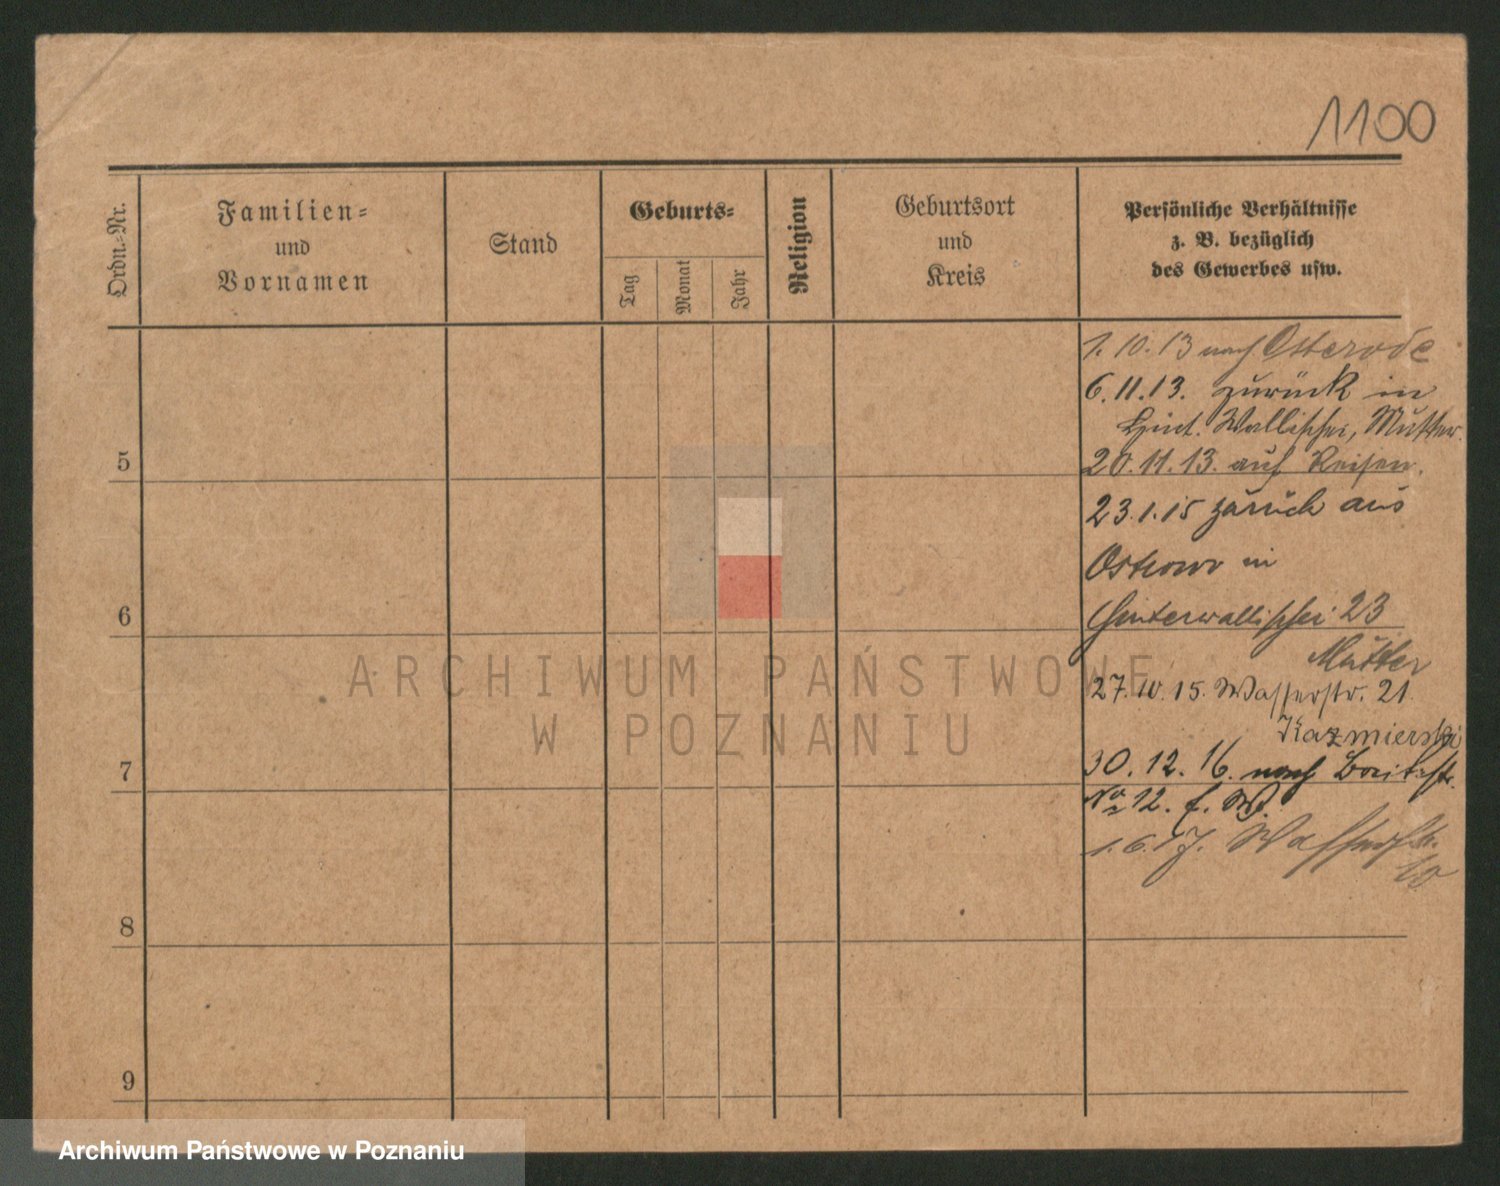 1100
Ordn.-Nr.
Familien-
und
Vornamen
Stand
Geburts-
Tag
Monat
Jahr
Religion
Geburtsort
und
Kreis
Persönliche Verhältnisse
z. B. bezüglich
des Gewerbes usw.
1. 10. 13 nach Osterode
6. 11. 13. zurück in
Hint. Wallischei, Mutter.
5
20. 11. 13. auf Reisen.
23. 1. 15 zurück aus
Ostrowo in
6
Hinterwallischei 23
Mutter
27. 10. 15. Wasserstr. 21.
Kazmierski
7
30. 12. 16. nach
No 12. f. W.
1. 6. 17. Wasserstr.
8
9
ARCHIWUM PAŃSTWOWE
W POZNANIU
Archiwum Państwowe w Poznaniu